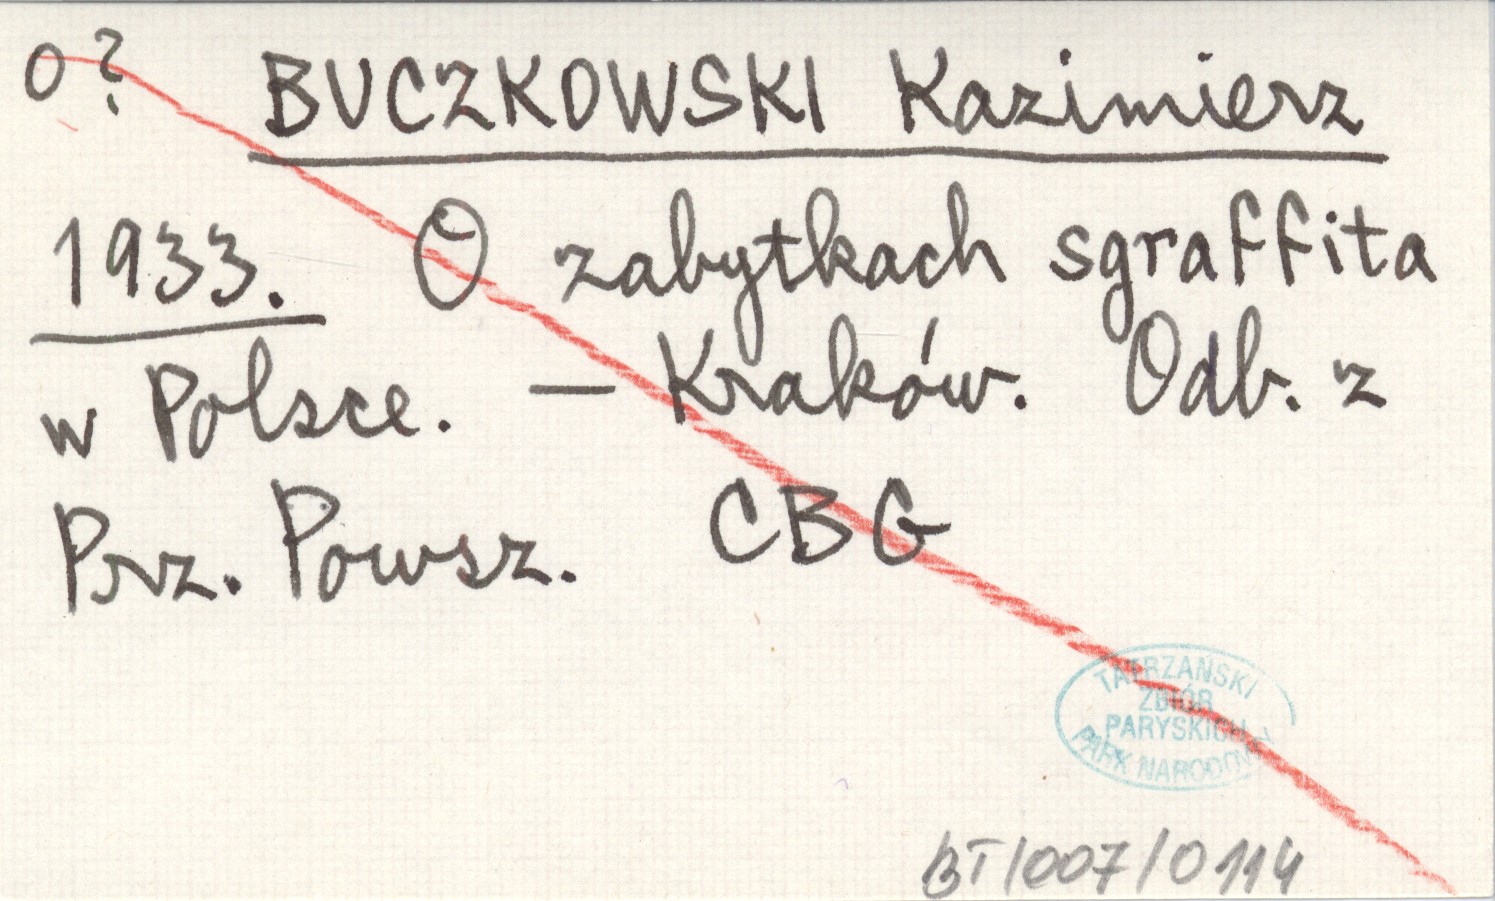 O ? BUCZKOWSKI Kazimierz
1933. O zabytkach sgraffita
w Polsce. — Kraków. Odb. z
Prz. Powsz. CBG
TATRZAŃSKI
ZBIÓR
PARYSKICH
PARK NARODOWY
BT/007/0114